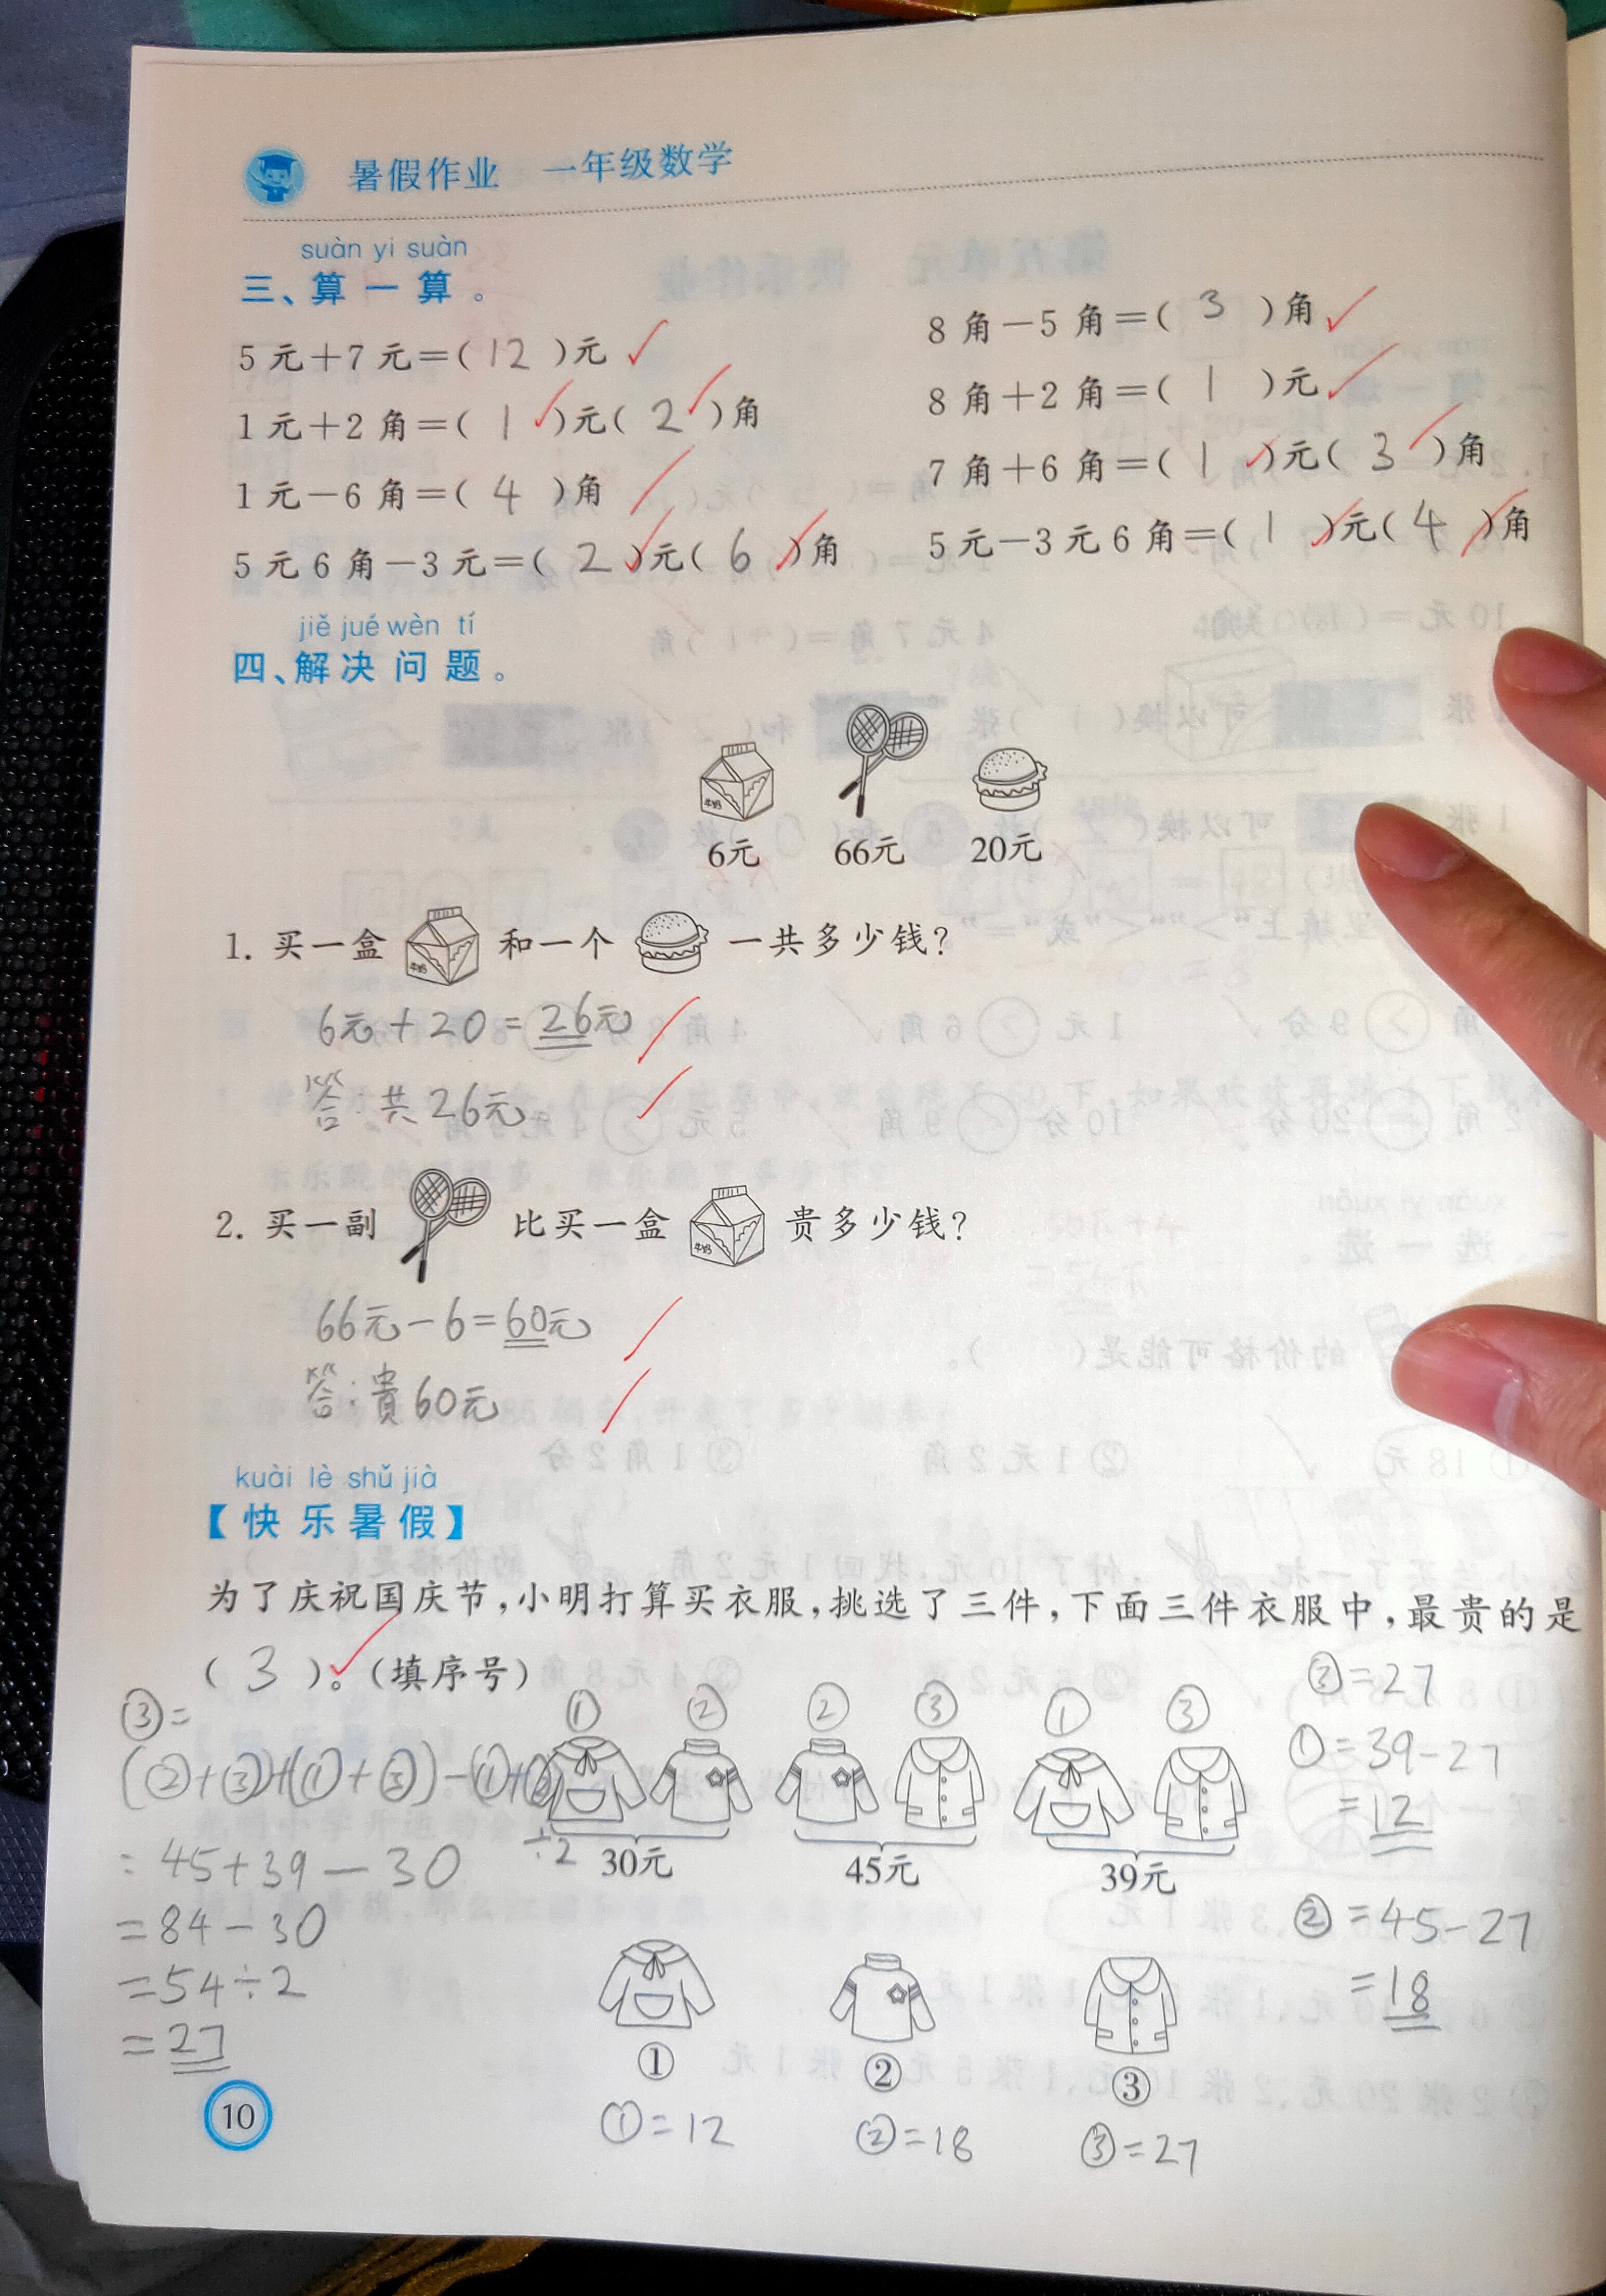 暑假作业 一年级数学
suàn yi suàn
三、算一算。
5元+7元=(12)元
8角-5角=(3)角
1元+2角=(1)元(2)角
8角+2角=(1)元
1元-6角=(4)角
7角+6角=(1)元(3)角
5元6角-3元=(2)元(6)角
5元-3元6角=(1)元(4)角
jiě jué wèn tí
四、解决问题。
6元 66元 20元
1. 买一盒 和一个 一共多少钱?
6元+20=26元
答:共26元
2. 买一副 比买一盒 贵多少钱?
66元-6=60元
答:貴60元
kuài lè shǔ jià
【快乐暑假】
为了庆祝国庆节,小明打算买衣服,挑选了三件,下面三件衣服中,最贵的是
(3)。(填序号)
③=27
③=
① ② ② ③ ① ③
(②+③)+(①+③)-(①+②
①=39-27
=12
÷2
30元 45元 39元
=45+39-30
=84-30
②=45-27
=54÷2
=18
=27
① ② ③
①=12 ②=18 ③=27
10